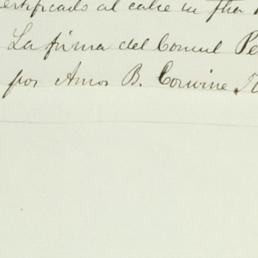 certificado al calce en fha
La firma del Consul Pe
por Amos B. Corwine